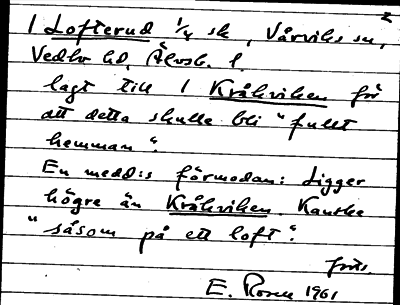 2
1 Lofterud 1/4 sk, Vårviks sn,
Vedbo hd, Älvsb. l.
lagt till 1 Kråkviken för
att detta skulle bli "fullt
hemman".
En medd:s förmodan: Ligger
högre än Kråkviken. Kanske
"såsom på ett loft".
E. Rosen 1961